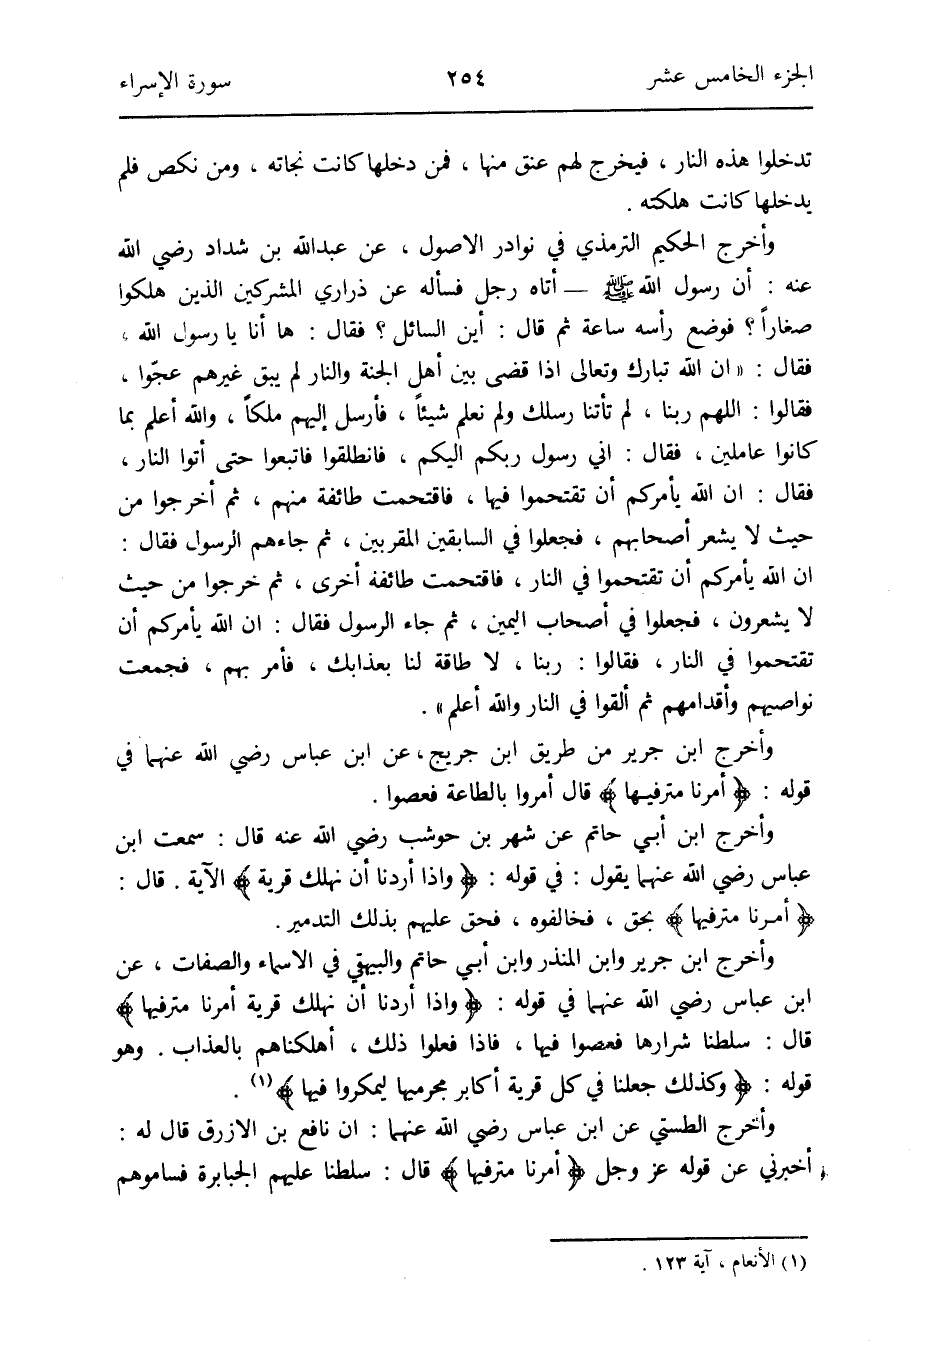 الجزء الخامس عشر ٢٥٤ سورة الإسراء
تدخلوا هذه النار ، فيخرج لهم عنق منها ، فمن دخلها كانت نجاته ، ومن نكص فلم
يدخلها كانت هلكته .
وأخرج الحكيم الترمذي في نوادر الاصول ، عن عبدالله بن شداد رضي الله
عنه : أن رسول الله ﷺ — أتاه رجل فسأله عن ذراري المشركين الذين هلكوا
صغاراً ؟ فوضع رأسه ساعة ثم قال : أين السائل ؟ فقال : ها أنا يا رسول الله ،
فقال : « ان الله تبارك وتعالى اذا قضى بين أهل الجنة والنار لم يبق غيرهم عجّوا ،
فقالوا : اللهم ربنا ، لم تأتنا رسلك ولم نعلم شيئاً ، فأرسل إليهم ملكاً ، والله أعلم بما
كانوا عاملين ، فقال : اني رسول ربكم اليكم ، فانطلقوا فاتبعوا حتى أتوا النار ،
فقال : ان الله يأمركم أن تقتحموا فيها ، فاقتحمت طائفة منهم ، ثم أخرجوا من
حيث لا يشعر أصحابهم ، فجعلوا في السابقين المقربين ، ثم جاءهم الرسول فقال :
ان الله يأمركم أن تقتحموا في النار ، فاقتحمت طائفة أخرى ، ثم خرجوا من حيث
لا يشعرون ، فجعلوا في أصحاب اليمين ، ثم جاء الرسول فقال : ان الله يأمركم أن
تقتحموا في النار ، فقالوا : ربنا ، لا طاقة لنا بعذابك ، فأمر بهم ، فجمعت
نواصيهم وأقدامهم ثم ألقوا في النار والله أعلم » .
وأخرج ابن جرير من طريق ابن جريج ، عن ابن عباس رضي الله عنهما في
قوله : ﴿ أمرنا مترفيها ﴾ قال أمروا بالطاعة فعصوا .
وأخرج ابن أبي حاتم عن شهر بن حوشب رضي الله عنه قال : سمعت ابن
عباس رضي الله عنهما يقول : في قوله : ﴿ واذا أردنا أن نهلك قرية ﴾ الآية . قال :
﴿ أمرنا مترفيها ﴾ بحق ، فخالفوه ، فحق عليهم بذلك التدمير .
وأخرج ابن جرير وابن المنذر وابن أبي حاتم والبيهقي في الاسماء والصفات ، عن
ابن عباس رضي الله عنهما في قوله : ﴿ واذا أردنا أن نهلك قرية أمرنا مترفيها ﴾
قال : سلطنا شرارها فعصوا فيها ، فاذا فعلوا ذلك ، أهلكناهم بالعذاب . وهو
قوله : ﴿ وكذلك جعلنا في كل قرية أكابر مجرميها ليمكروا فيها ﴾ (١) .
وأخرج الطستي عن ابن عباس رضي الله عنهما : ان نافع بن الازرق قال له :
أخبرني عن قوله عز وجل ﴿ أمرنا مترفيها ﴾ قال : سلطنا عليهم الجبابرة فساموهم
(١) الأنعام ، آية ١٢٣ .